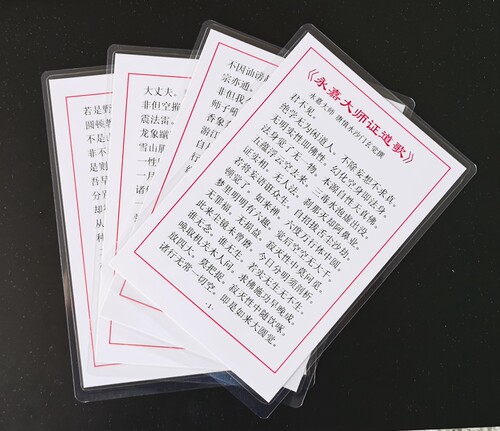 若是野
圆顿教
不是
非不
是
大丈夫。
非但空摧
震法雷。
龙象蹴
雪山
一性
不因讪谤
宗亦通。
非但我
师子吼
香象
游江
《永嘉大师证道歌》
永嘉大师 唐慎水沙门玄觉撰
君不见。
绝学无为闲道人。不除妄想不求真。
无明实性即佛性。幻化空身即法身。
法身觉了无一物。本源自性天真佛。
五蕴浮云空去来。三毒水泡虚出没。
证实相。无人法。刹那灭却阿鼻业。
若将妄语诳众生。自招拔舌尘沙劫。
顿觉了。如来禅。六度万行体中圆。
梦里明明有六趣。觉后空空无大千。
无罪福。无损益。寂灭性中莫问觅。
比来尘镜未曾磨。今日分明须剖析。
谁无念。谁无生。若实无生无不生。
唤取机关木人问。求佛施功早晚成。
放四大。莫把捉。寂灭性中随饮啄。
诸行无常一切空。即是如来大圆觉。
-1-